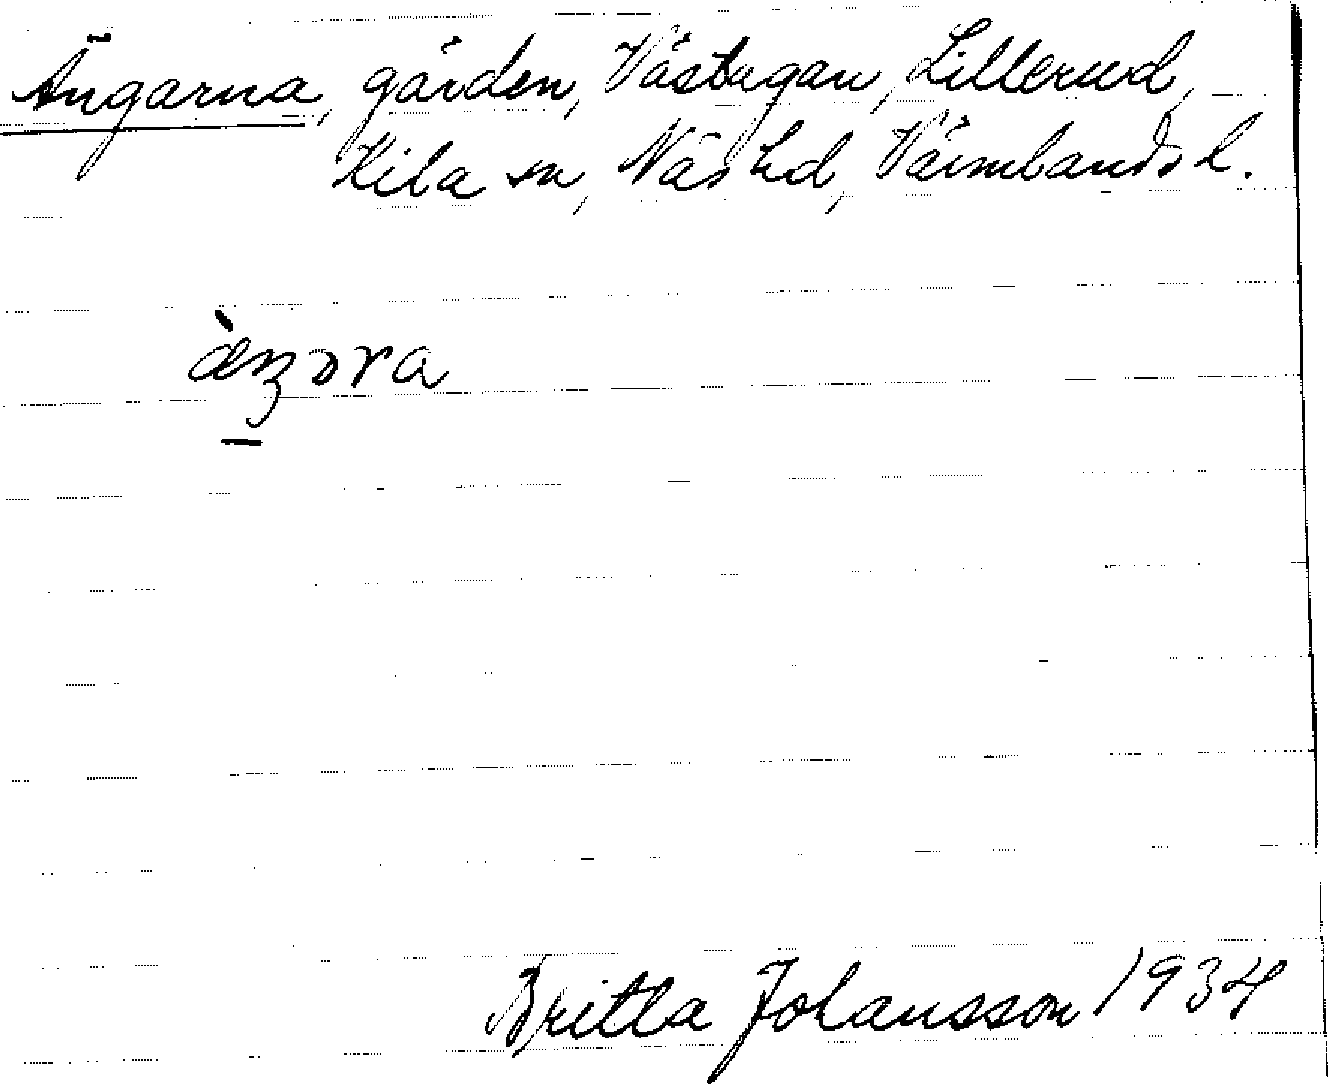 Ängarna, gärden, Västugan, Lillerud,
Kila sn, Näs hd, Värmlands l.
Britta Johansson 1934